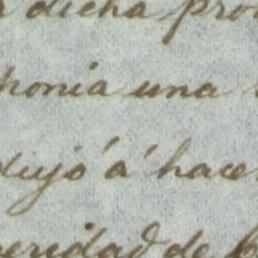 dicha pro
ponia una
dujó á hace
peridad de